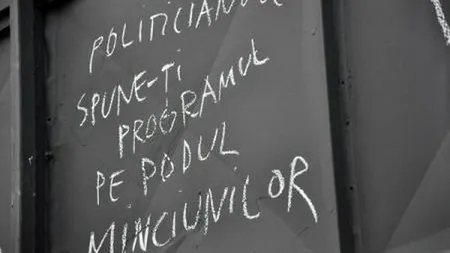 POLITICIANUL
SPUNE-ȚI
PROGRAMUL
PE PODUL
MINCIUNILOR